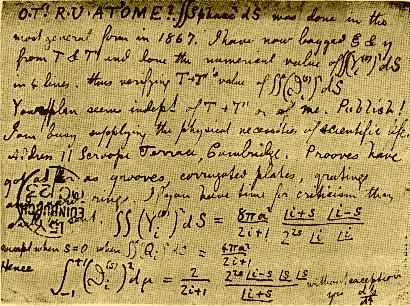 O.T'. R.U. AT 'OME? ∬ Spharc² dS was done in the
most general form in 1867. I have now bagged ξ & η
from T & T' and done the numerical value of ∬(Y_i^(s))² dS
in 4 lines. thus verifying T + T''s value of ∬(ϑ_i^(s))² dS
Your plan seems indept. of T + T' or of me. Publish!
I am busy supplying the physical necessities of scientific life
address 11 Scroope Terrace, Cambridge. Prooves have
got as grooves, corrugated plates, grating
rings. If you have time for criticism than
∬(Y_i^(s))² dS = 8πa²/(2i+1) |i+s |i-s / 2^{2s} |i |i
except when s=0 when ∬(Q_i)² dS = 4πa²/(2i+1)
Hence ∫_{-1}^{+1} (ϑ_i^(s))² dμ = 2/(2i+1) 2^{2s} |i-s |s |s / |i+s without exception
EDINBURGH